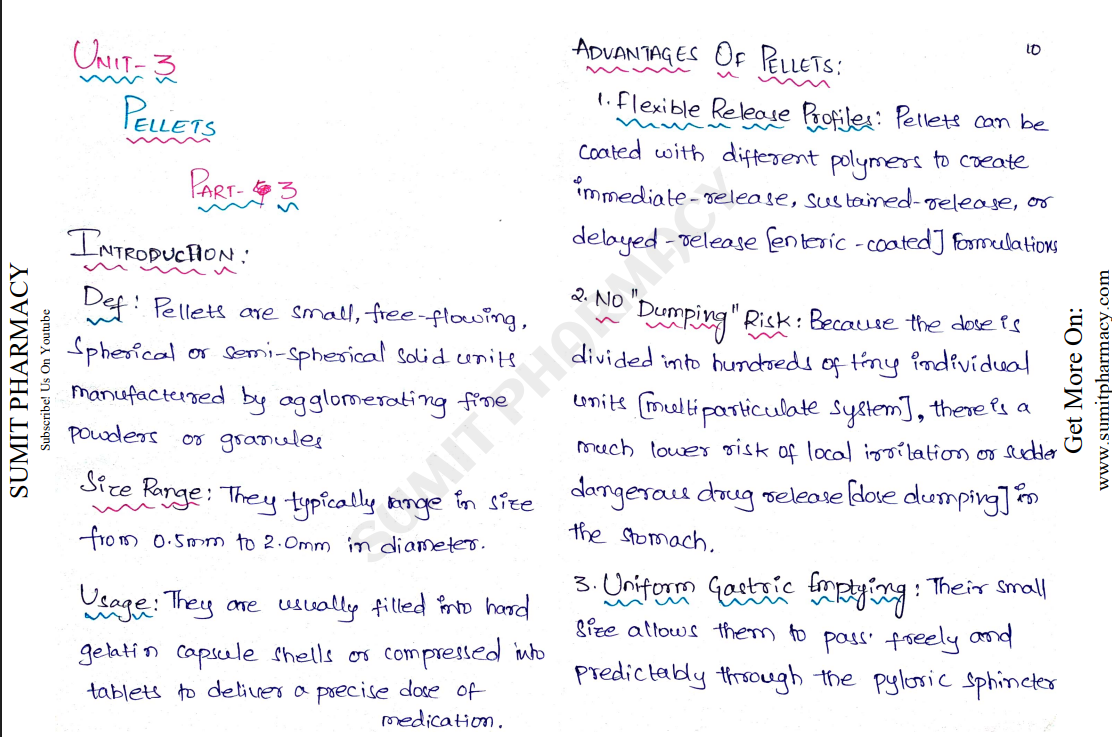 UNIT-3
PELLETS
PART-3
INTRODUCTION:
Def: Pellets are small, free-flowing,
Spherical or semi-spherical solid units
manufactured by agglomerating fine
powders or granules
Size Range: They typically range in size
from 0.5mm to 2.0mm in diameter.
Usage: They are usually filled into hard
gelatin capsule shells or compressed into
tablets to deliver a precise dose of
medication.
10
ADVANTAGES OF PELLETS:
1. Flexible Release Profiles: Pellets can be
coated with different polymers to create
immediate-release, sustained-release, or
delayed-release [enteric-coated] formulations
2. NO "Dumping" Risk: Because the dose is
divided into hundreds of tiny individual
units [multiparticulate system], there is a
much lower risk of local irritation or sudden
dangerous drug release [dose dumping] in
the stomach.
3. Uniform Gastric Emptying: Their small
size allows them to pass freely and
predictably through the pyloric sphincter
SUMIT PHARMACY
Subscribe! Us On Youtube
Get More On:
www.sumitpharmacy.com
SUMIT PHORMACY